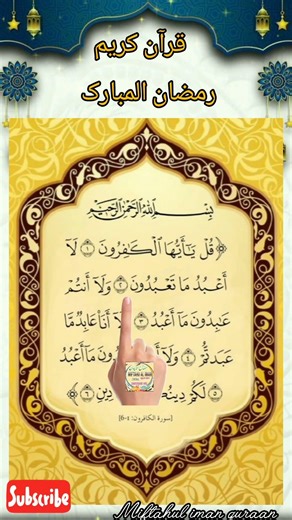 قرآن کریم
رمضان المبارک
بِسْمِ اللَّهِ الرَّحْمَٰنِ الرَّحِيمِ
﴿ قُلْ يَٰٓأَيُّهَا ٱلْكَٰفِرُونَ ١ لَآ
أَعْبُدُ مَا تَعْبُدُونَ ٢ وَلَآ أَنتُمْ
عَٰبِدُونَ مَآ أَعْبُدُ ٣ أَنَا۠ عَابِدٌ مَّا
عَبَدتُّمْ ٤ وَلَآ مَآ أَعْبُدُ
٥ لَكُمْ دِينِ ٦ ﴾
[سورة الكافرون: 1-6]
Subscribe
Miftahul iman quraan